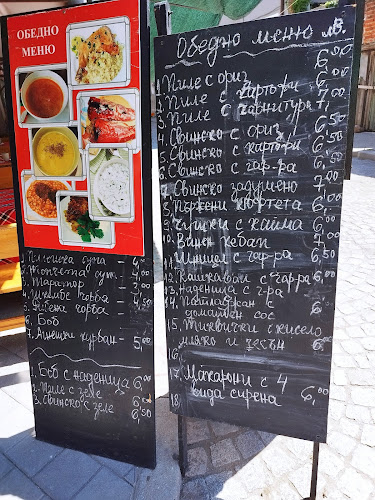 ОБЕДНО
МЕНЮ
1. Пилешка супа
2. Топчета суп.
3. Таратор
4. Шкембе чорба 4,50
5. чорба
6. Боб
7. Агнешки курбан 5,00
1. Боб с наденица 6,00
2. Пиле с зеле 6,00
3. Свинско с зеле 6,50
Обедно меню лв.
1. Пиле с ориз 6,00
2. Пиле с картофи
3. Пиле с гарнитура
4. Свинско с ориз 6,50
5. Свинско с картофи 6,50
6. Свинско с гар-ра
7. Свинско задушено 7,00
8. Пържени кюфтета 6,00
9. Чушки с кайма 6,00
10. кебап
11. Шницел с гар-ра 6,50
12. Кашкавал с гар-ра 6,00
13. Наденица с г-ра
14. с
доматен сос 6,00
15. Тиквички с кисело
мляко и чесън 6,00
16.
17. Макарони с 4
вида сирена 6,00
18.